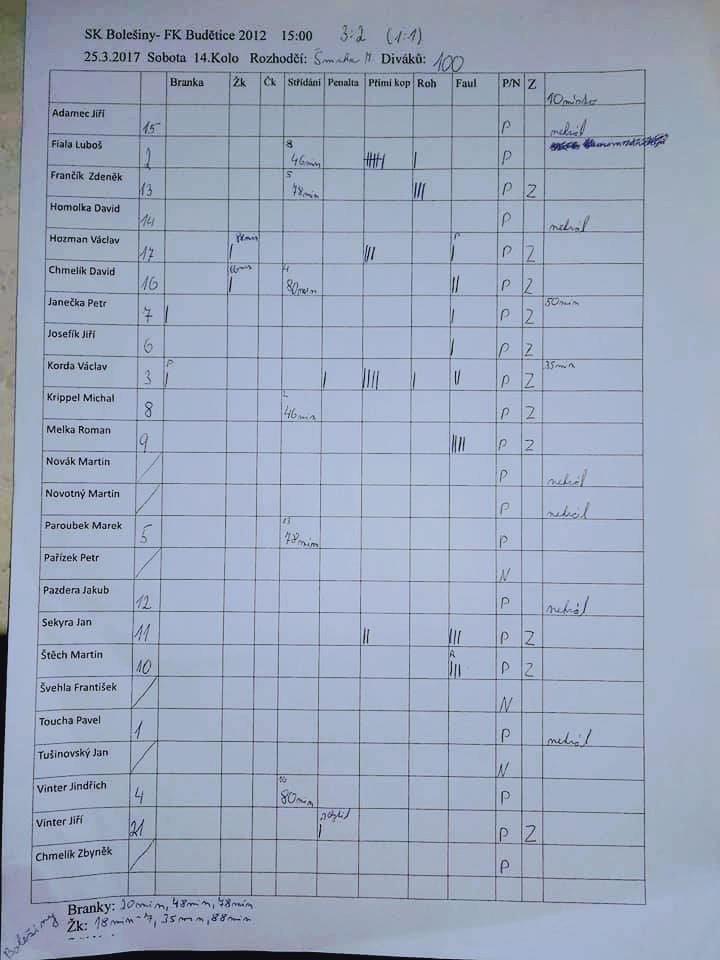 SK Bolešiny- FK Budětice 2012 15:00 3:2 (1:1)
25.3.2017 Sobota 14.Kolo Rozhodčí: Diváků: 100
Branka Žk Čk Střídání Penalta Přímí kop Roh Faul P/N Z
Adamec Jiří 15 P nehrál
Fiala Luboš 2 8 46min |||||| | P
Frančík Zdeněk 13 5 78min ||| P Z
Homolka David 14 P nehrál
Hozman Václav 17 | ||| | P Z
Chmelík David 16 | 4 80min || P Z
Janečka Petr 7 | | P Z 50min
Josefík Jiří 6 | P Z
Korda Václav 3 P | | |||| | || P Z 35min
Krippel Michal 8 2 46min P Z
Melka Roman 9 |||| P Z
Novák Martin / P nehrál
Novotný Martin / P nehrál
Paroubek Marek 5 13 78min P
Pařízek Petr / N
Pazdera Jakub 12 P nehrál
Sekyra Jan 11 || ||| P Z
Štěch Martin 10 ||| P Z
Švehla František / N
Toucha Pavel 1 P nehrál
Tušinovský Jan / N
Vinter Jindřich 4 16 80min P
Vinter Jiří 21 | P Z
Chmelík Zbyněk / P
Branky: 30min, 48min, 78min
Žk: 18min-7, 35min, 88min
Bolešiny